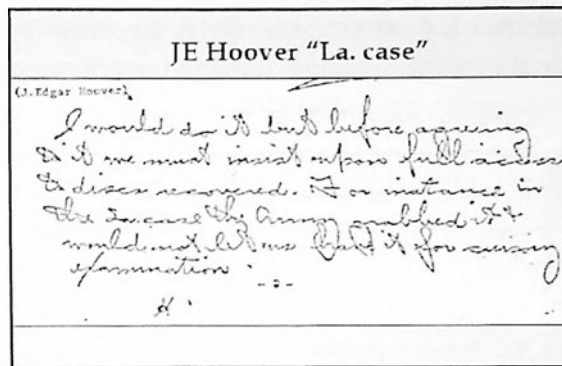 JE Hoover “La. case”
(J.Edgar Hoover)
I would do it but before agreeing
to it we must insist upon full access
to discs recovered. For instance in
the case the Army grabbed it &
would not let us have it for cursory
examination.
-2-
H.